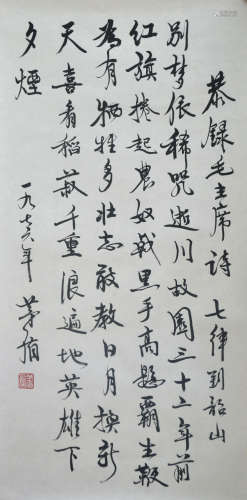 恭録毛主席詩 七律到韶山
别梦依稀咒逝川故園三十二年前
红旗捲起農奴戟黑手高懸霸主鞭
為有牺牲多壮志敢教日月换新
天喜看稻菽千重浪遍地英雄下
夕煙
一九七六年 茅盾